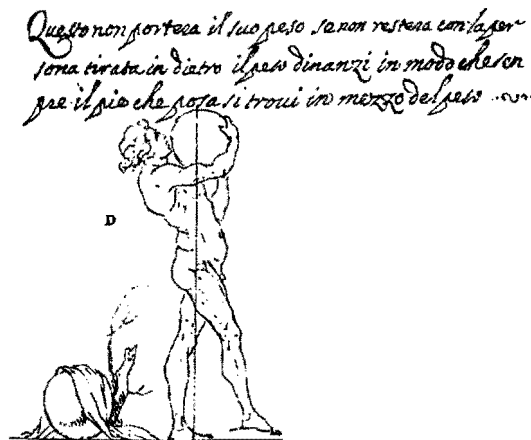 Questo non portera il suo peso se non restera con la per
sona tirata in dietro il peso dinanzi in modo che sem
pre il pie che posa si trovi in mezzo del peso
D